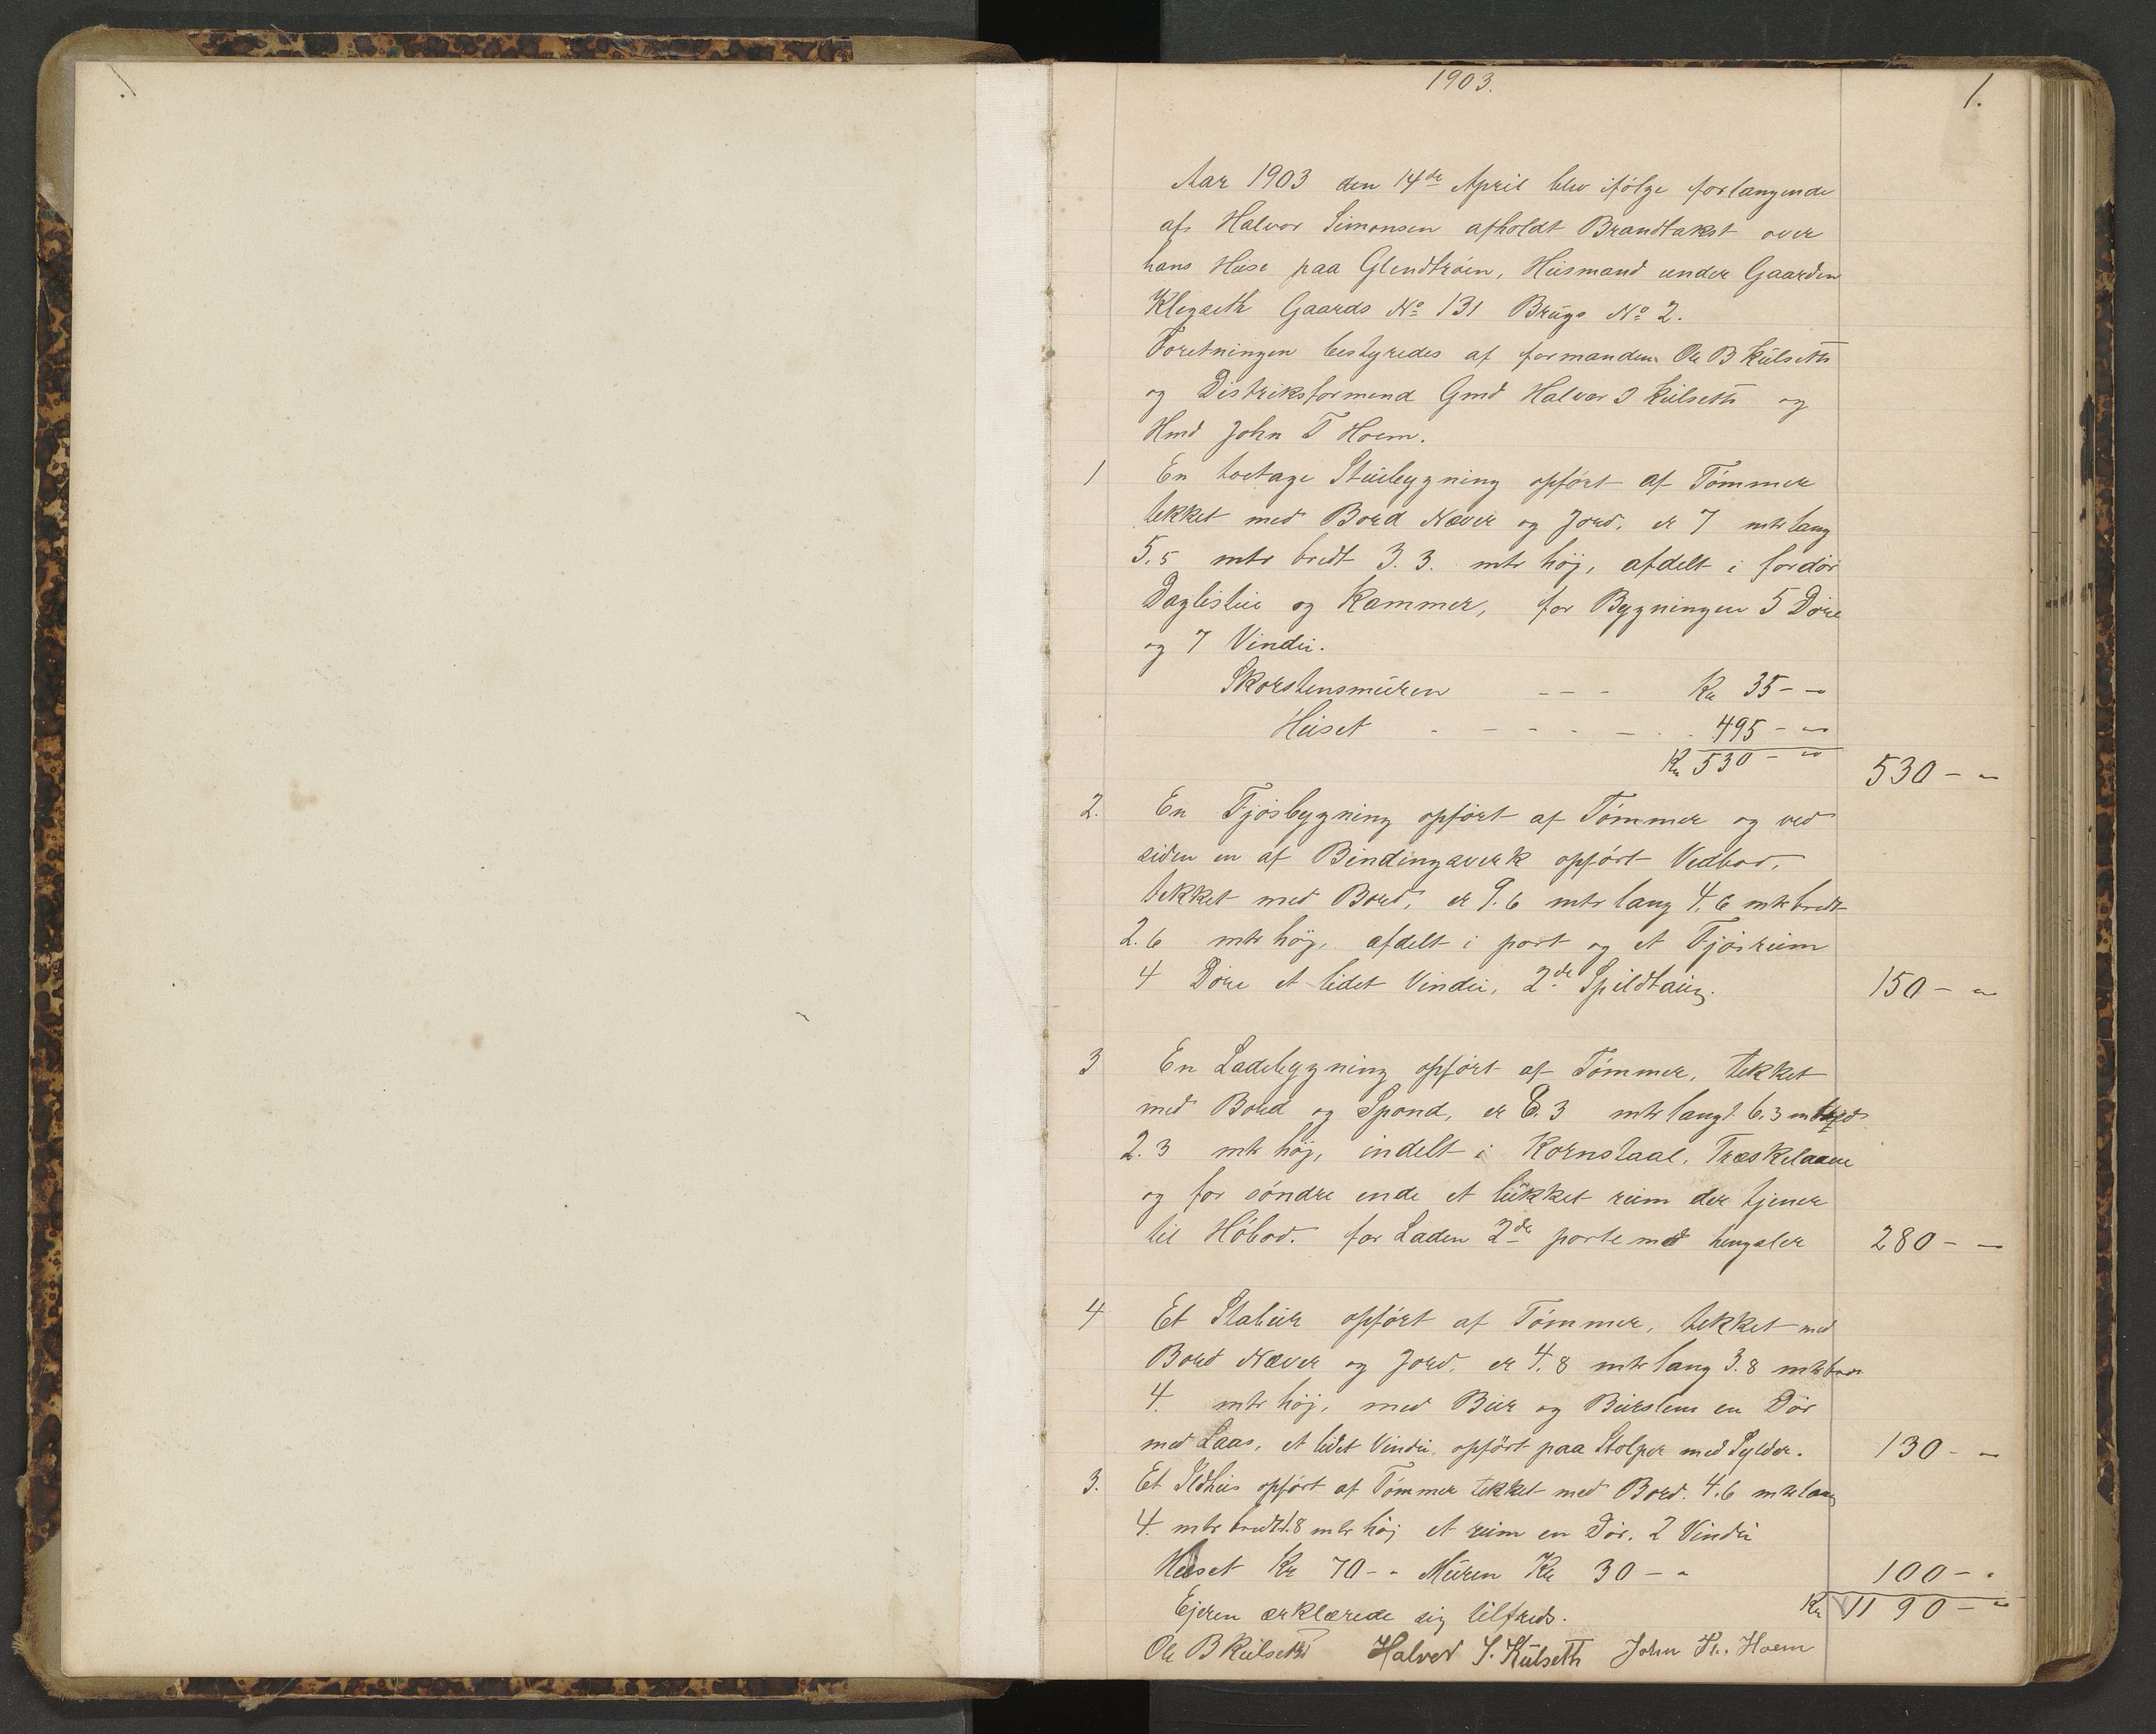 1903.
1.
Aar 1903 den 14de April blev ifølge forlangende
af Halvor Simonsen afholdt Brandtakst over
hans Huse paa Glendtrøen, Husmand under Gaarden
Klegseth Gaards No 131 Brugs No 2.
Foretningen bestyredes af formanden Ole B Kulseth
og Distriksformend Gmd Halvor S Kulseth og
Hmd John T Hoem.
1 En toetage Stuebygning opført af Tømmer
tekket med Bord Næver og Jord, er 7 mtr lang
5.5 mtr bredt 3.3. mtr høj, afdelt i fordør
Daglistue og Kammer, for Bygningen 5 Døre
og 7 Vindu.
Skorstensmuren - - - Kr 35 - -
Huset - - - - - 495 - -
Kr 530 - - 530 - -
2. En Fjøsbygning opført af Tømmer og ved
siden en af Bindingsverk opført Vedbod,
tekket med Bord, er 9.6 mtr lang 4.6 mtr bredt
2.6 mtr høj, afdelt i port og et Fjøsrum
4 Døre et lidet Vindu, 2de Spildtaug. 150 - -
3 En Ladebygning opført af Tømmer, tekket
med Bord og Spond, er 8.3 mtr langt 6.3 mtr
2.3 mtr høj, indelt i Kornstaal, Træskelaave
og for søndre ende et lukket rum der tjener
til Høbod. for Laden 2de porte med hengsler 280 - -
4 Et Stabur opført af Tømmer, tekket med
Bord Næver og Jord, er 4.8 mtr lang 3.8 mtr bred
4. mtr høj, med Bur og Burslem en Dør
med Laas, et lidet Vindu, opført paa Stolper med Sylder. 130 - -
3. Et Ildhus opført af Tømmer tekket med Bord. 4.6 mtr lang
4. mtr bredt 1.8 mtr høj et rum en Dør. 2 Vindu
Huset Kr 70 - - Muren Kr 30 - - 100 - -
Ejeren ærklærede sig tilfreds. Kr 1190 - -
Ole B Kulseth Halvor S. Kulseth John Th. Hoem